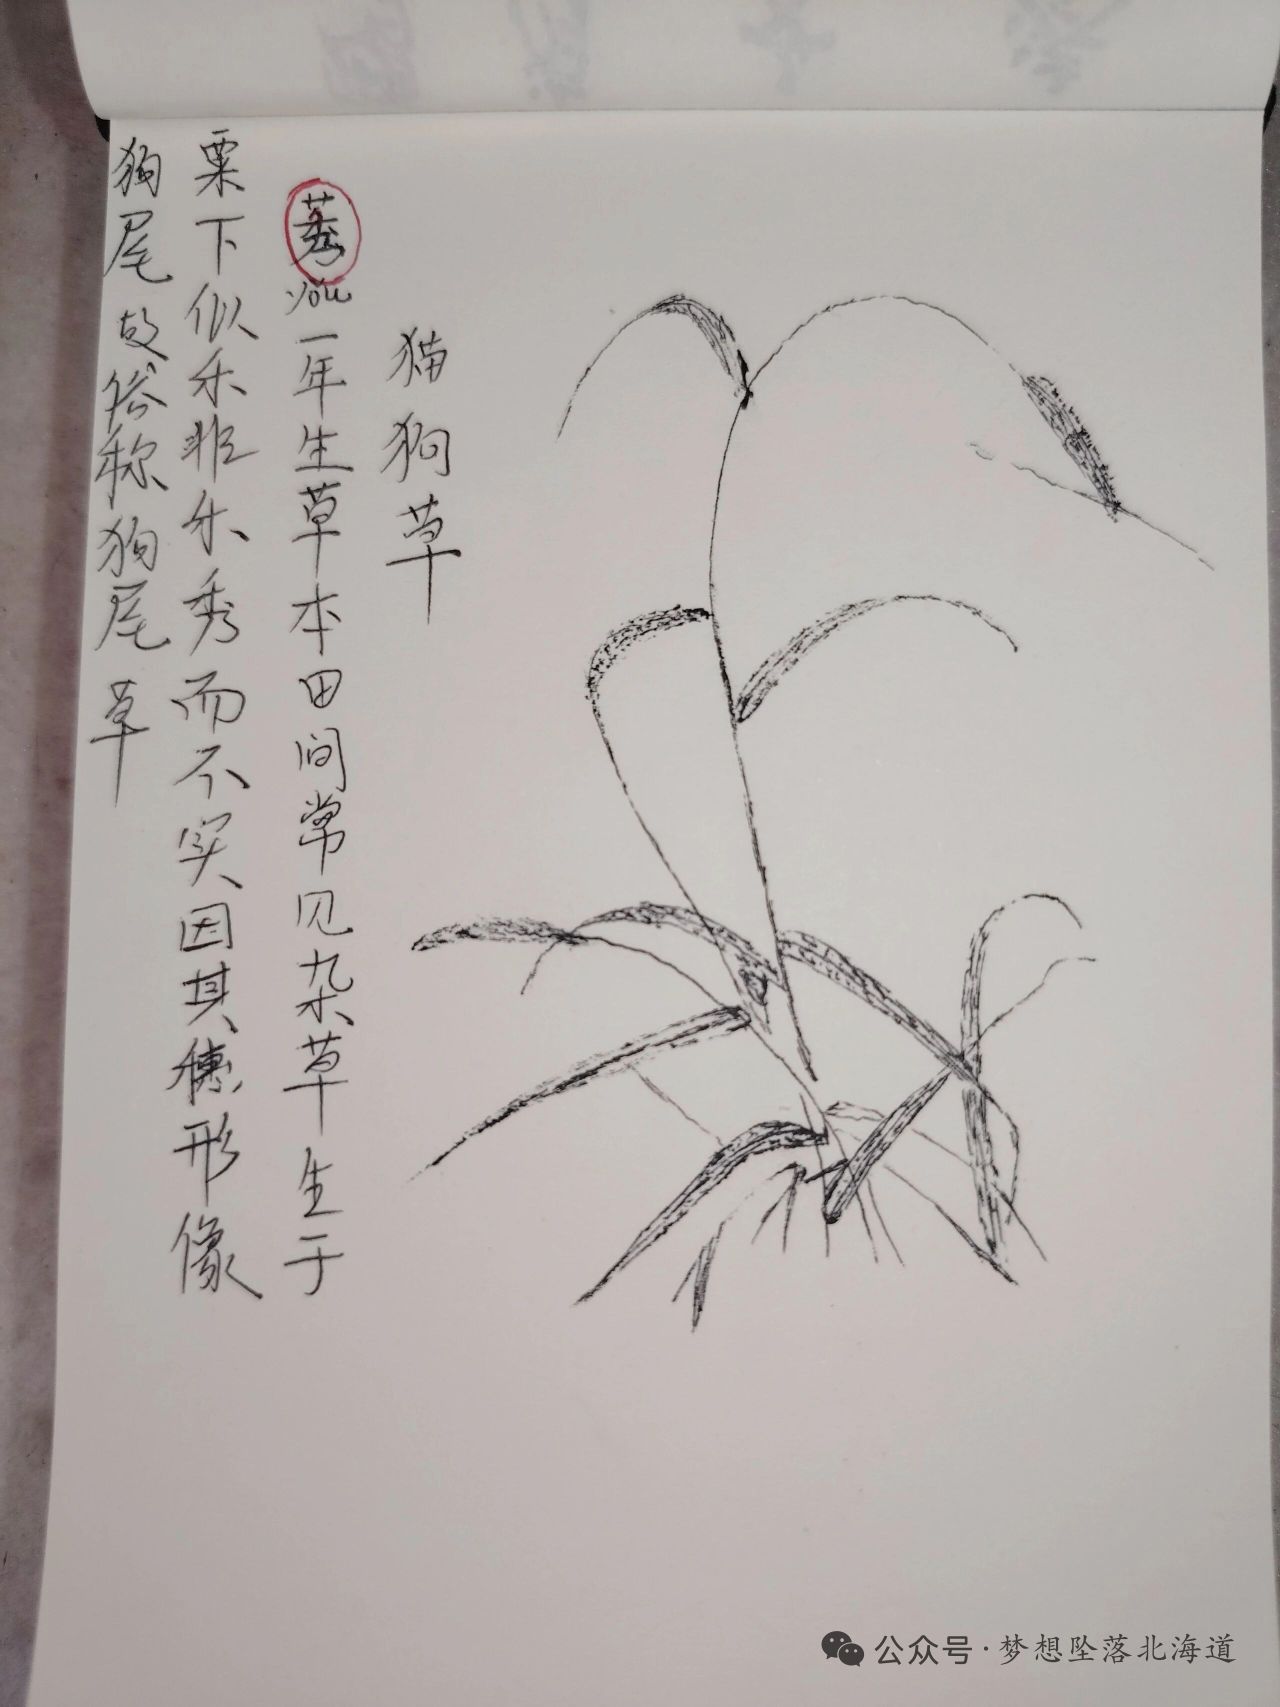 猫狗草
莠you一年生草本田间常见杂草生于
粟下似禾非禾秀而不实因其穗形像
狗尾故俗称狗尾草
公众号·梦想坠落北海道